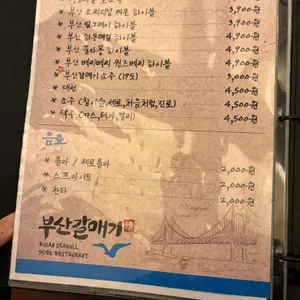 * 부산 오리지널 레몬 하이볼 3,900원
* 부산 얼그레이 하이볼 3,900원
* 부산 하동매실 하이볼 4,900원
* 부산 하이볼 4,900원
* 부산 베리베리 하이볼 4,900원
* 부산갈매기 소주 (19도) 3,000원
* 대선 4,500원
* 소주 (참이슬,새로,처음처럼,진로) 4,500원
* 맥주 (카스,테라,켈리) 4,500원
음료
* 콜라 / 제로콜라 2,000원
* 스프라이트 2,000원
* 환타 2,000원
부산갈매기
BUSAN SEAGULL
PORK RESTAURANT